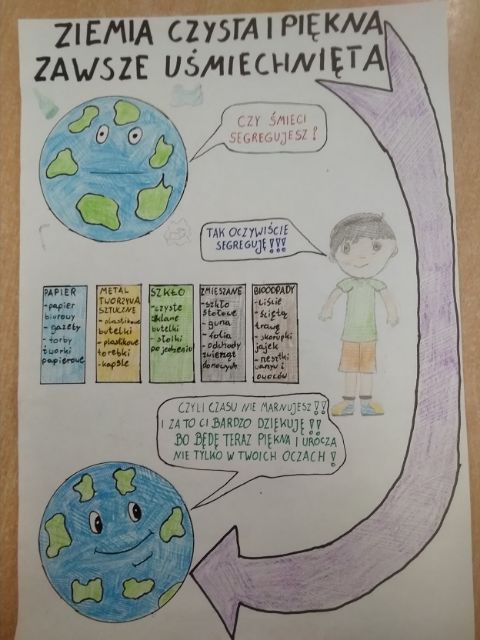 ZIEMIA CZYSTA I PIĘKNA
ZAWSZE UŚMIECHNIĘTA
CZY ŚMIECI
SEGREGUJESZ?
TAK OCZYWIŚCIE
SEGREGUJĘ!!!
PAPIER
- papier
biurowy
- gazety
- torby
worki
papierowe
METAL
TWORZYWA
SZTUCZNE
- plastikowe
butelki
- plastikowe
torebki
- kapsle
SZKŁO
- czyste
szklane
butelki
- słoiki
po jedzeniu
ZMIESZANE
- szkło
stołowe
- guma
- folia
- odchody
zwierząt
domowych
BIOODPADY
- liście
- ścięta
trawa
- skorupki
jajek
- resztki
warzyw i
owoców
CZYLI CZASU NIE MARNUJESZ!!
I ZA TO CI BARDZO DZIĘKUJĘ!!
BO BĘDĘ TERAZ PIĘKNA I UROCZA
NIE TYLKO W TWOICH OCZACH!